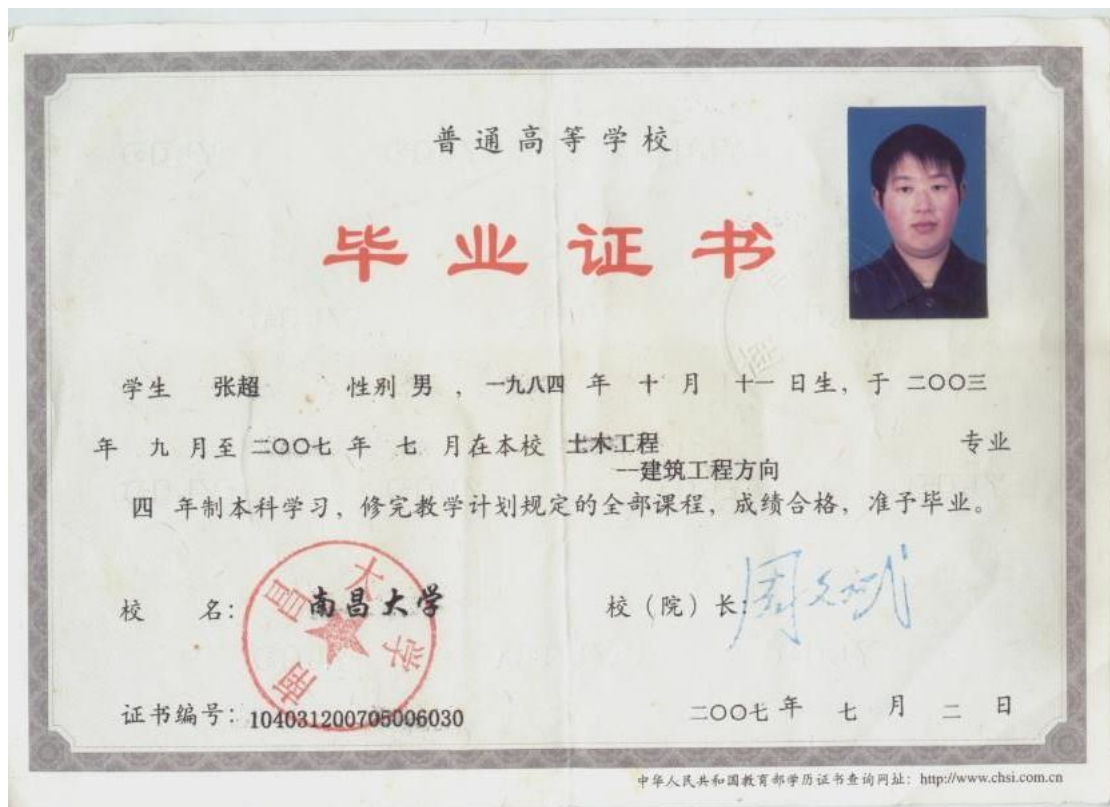 普通高等学校
毕业证书
学生 张超 性别 男 ，一九八四 年 十 月 十一 日生，于 二〇〇三
年 九 月至 二〇〇七 年 七 月在本校 土木工程 专业
--建筑工程方向
四 年制本科学习，修完教学计划规定的全部课程，成绩合格，准予毕业。
校 名： 南昌大学
南昌大学
校（院）长：周文斌
证书编号：104031200705006030
二〇〇七 年 七 月 二 日
中华人民共和国教育部学历证书查询网址：http://www.chsi.com.cn